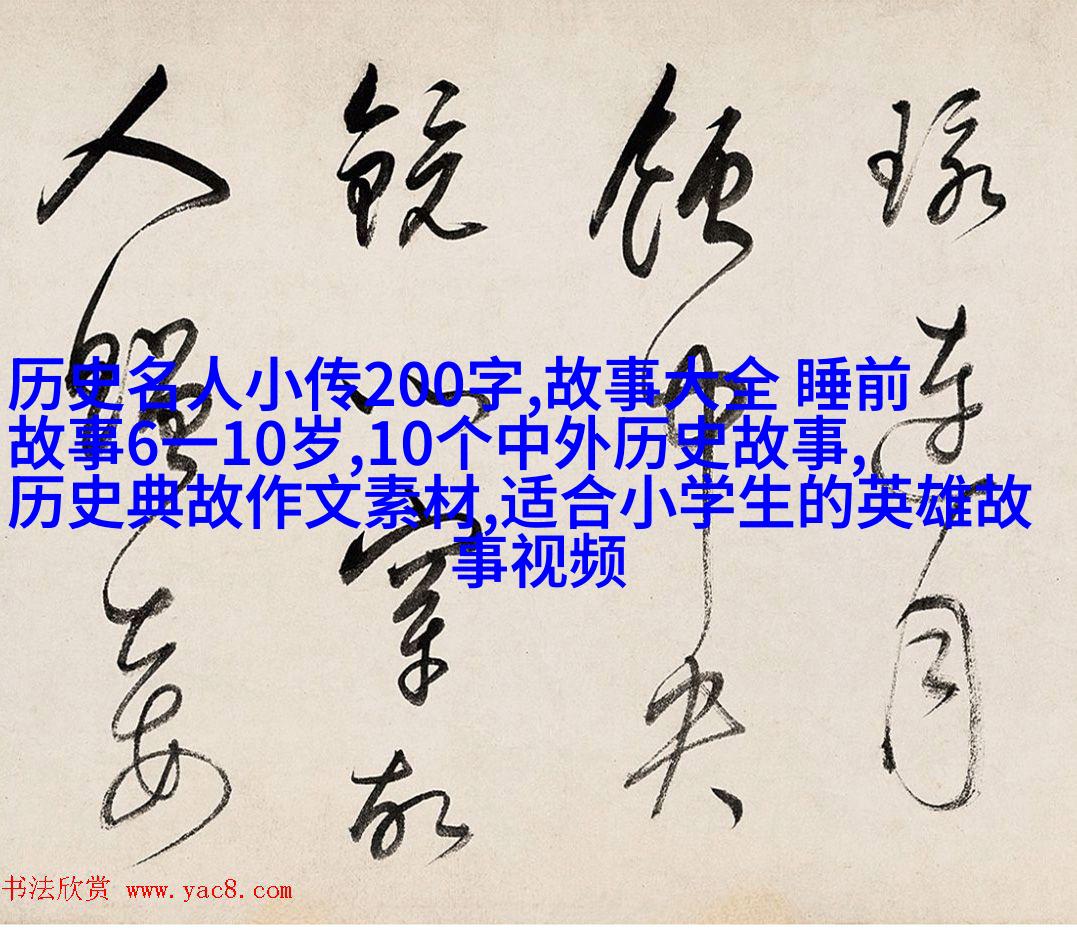 历史名人小传200字,故事大全 睡前
故事6一10岁,10个中外历史故事,
历史典故作文素材,适合小学生的英雄故
事视频
连月
中央
鏡心
人
书法欣赏 www.yac8.com